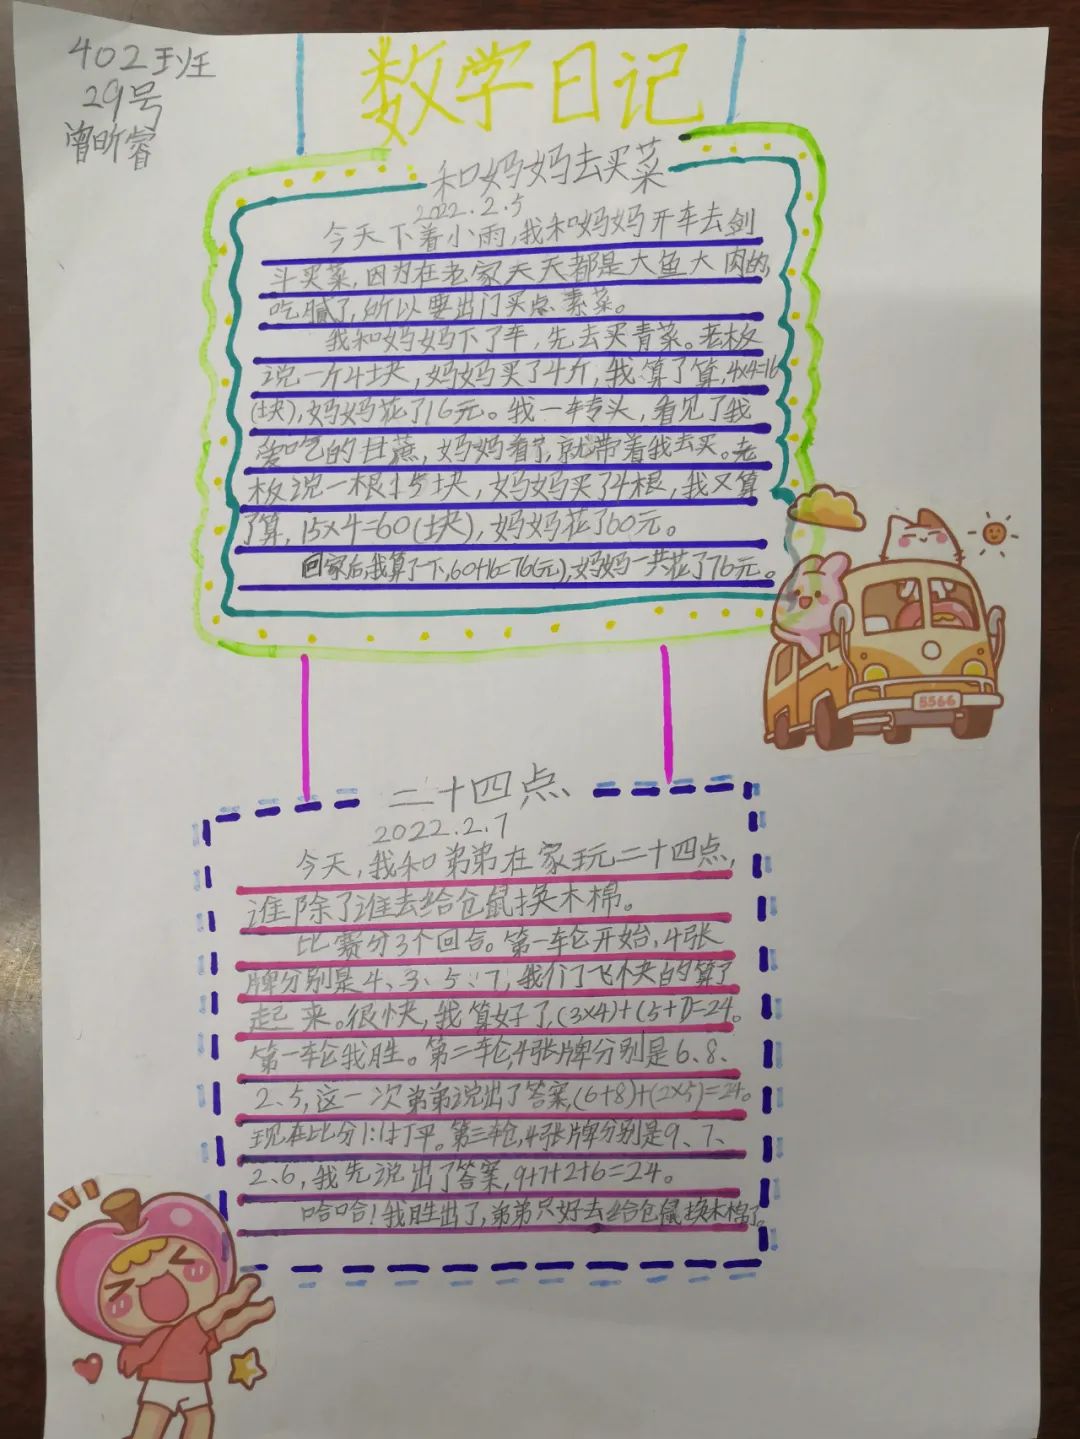 402班
29号
曾昕睿
数学日记
和妈妈去买菜
2022.2.5
今天下着小雨,我和妈妈开车去剑
斗买菜,因为在老家天天都是大鱼大肉的,
吃腻了,所以要出门买点素菜。
我和妈妈下了车,先去买青菜。老板
说一斤4块,妈妈买了4斤,我算了算,4×4=16
(块),妈妈花了16元。我一转头,看见了我
爱吃的甘蔗,妈妈看了,就带着我去买。老
板说一根15块,妈妈买了4根,我又算
了算,15×4=60(块),妈妈花了60元。
回家后,我算了一下,60+16=76(元),妈妈一共花了76元。
5566
二十四点
2022.2.7
今天,我和弟弟在家玩二十四点,
谁除了谁去给仓鼠换木棉。
比赛分3个回合。第一轮开始,4张
牌分别是4、3、5、7,我们了飞个夬白的算了
起来。很快,我算好了,(3×4)+(5+7)=24。
第一轮我胜。第二轮,4张牌分别是6、8、
2、5,这一次弟弟说出了答案,(6+8)+(2×5)=24。
现在比分1:1打平。第三轮,4张牌分别是9、7、
2、6,我先说出了答案,9+7+2+6=24。
哈哈!我胜出了,弟弟只好去给仓鼠换木棉了。